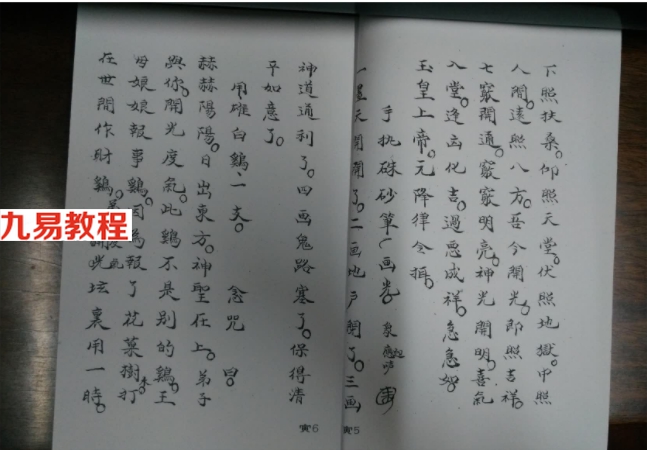 下照扶桑。仰照天堂。伏照地獄。中照
人間。遠照八方。吾今開光。即照吉祥。
七竅開通。竅竅明亮。神光開明。喜氣
入堂。逢凶化吉。過惡成祥。急急如
玉皇上帝。元降律令捐。
手执硃砂筆(画光。
一画天開開了。二画地户開了。三画
寅5
神道通利了。四画鬼路塞了。保得清
平如意了。
用雄白鷄一支。 念咒曰。
赫赫陽陽。日出東方。神聖在上。弟子
與你開光度氣。此鷄不是別的鷄。王
母娘娘報事鷄。因為報了花菜樹。打
在世間作財鷄。光坛裏用一時。
寅6
九易教程